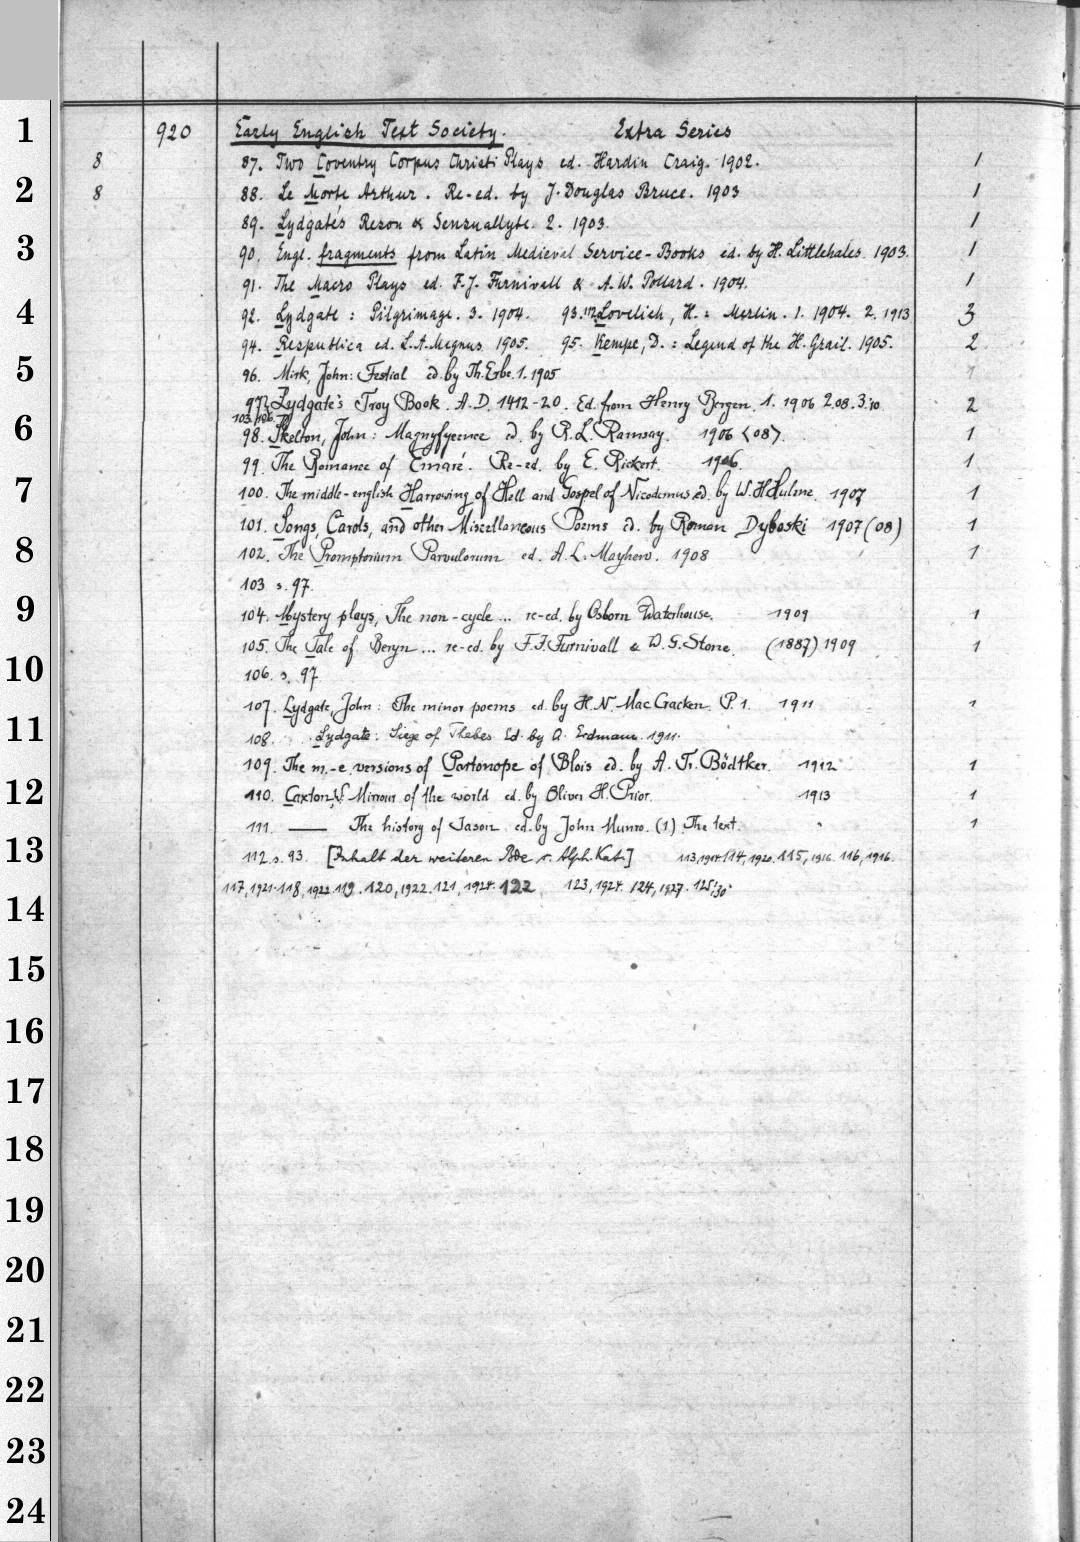 1 920 Early English Text Society. Extra Series
8 87. Two Coventry Corpus Christi Plays ed. Hardin Craig. 1902. 1
2 8 88. Le Morte Arthur. Re-ed. by J. Douglas Bruce. 1903 1
89. Lydgate's Reson & Sensuallyte. 2. 1903. 1
3 90. Engl. fragments from Latin Medieval Service-Books ed. by H. Littlehales. 1903. 1
91. The Macro Plays ed. F. J. Furnivall & A. W. Pollard. 1904. 1
4 92. Lydgate: Pilgrimage. 3. 1904. 93. 112 Lovelich, H.: Merlin. 1. 1904. 2. 1913 3
94. Respublica ed. L. A. Magnus 1905. 95. Kempe, D.: Legend of the H. Grail. 1905. 2
5 96. Mirk, John: Festial ed. by Th. Erbe. 1. 1905 1
97. Lydgate's Troy Book. A.D. 1412-20. Ed. from Henry Bergen. 1. 1906 2.08. 3.'10 2
103/106
6 98. Skelton, John: Magnyfycence ed. by R. L. Ramsay. 1906 <08>. 1
99. The Romance of Emaré. Re-ed. by E. Rickert. 1906. 1
7 100. The middle-english Harrowing of Hell and Gospel of Nicodemus ed. by W. H. Hulme. 1907 1
101. Songs, Carols, and other Miscellaneous Poems ed. by Roman Dyboski 1907 (08) 1
8 102. The Promptorium Parvulorum ed. A. L. Mayhew. 1908 1
103 s. 97.
9 104. Mystery plays, The non-cycle ... re-ed. by Osborn Waterhouse. 1909 1
105. The Tale of Beryn ... re-ed. by F. J. Furnivall & W. G. Stone. (1887) 1909 1
10 106. s. 97.
107. Lydgate, John: The minor poems ed. by H. N. Mac Cracken. P. 1. 1911 1
11 108. Lydgate: Siege of Thebes Ed. by A. Erdmann. 1911.
109. The m.-e. versions of Partonope of Blois ed. by A. Tr. Bödtker. 1912 1
12 110. Caxton, W. Mirrour of the world ed. by Oliver H. Prior. 1913 1
111. —— The history of Jason. ed. by John Munro. (1) The text. 1
13 112. s. 93. [Inhalt der weiteren Bde s. Alph. Kat.] 113, 1914. 114, 1920. 115, 1916. 116, 1916.
117, 1921. 118, 1922. 119. 120, 1922. 121, 1924. 122. 123, 1924. 124, 1927. 125/30
14
15
16
17
18
19
20
21
22
23
24